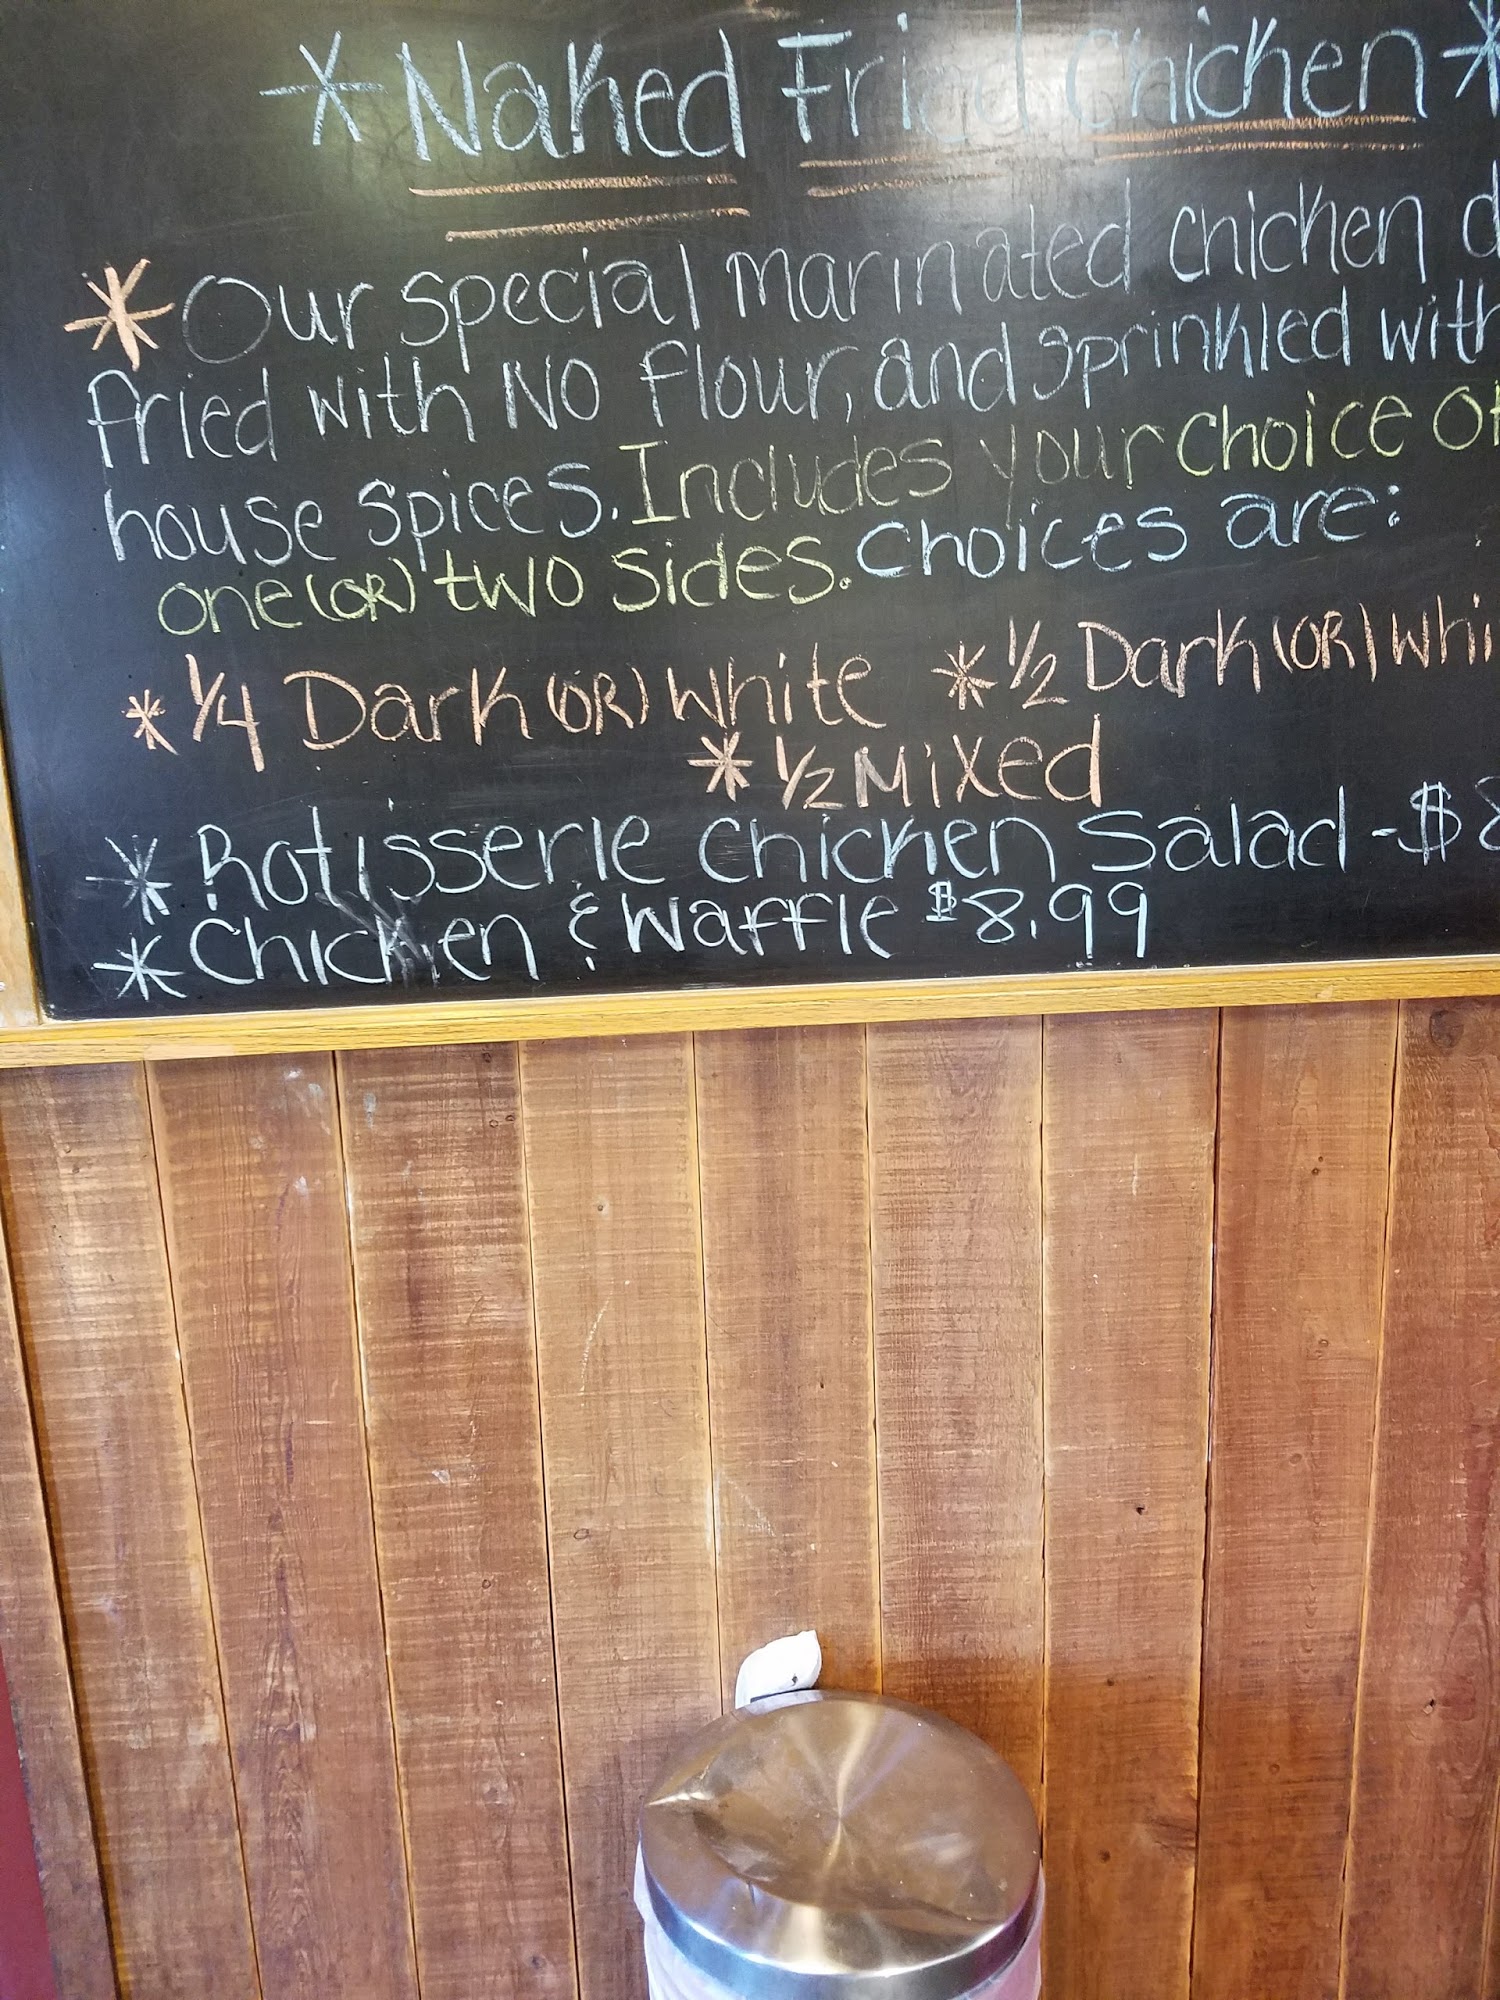 *Naked Fried Chicken*
*Our special marinated chicken
fried with NO flour, and sprinkled with
house spices. Includes your choice of
one (OR) two sides. Choices are:
*1/4 Dark (OR) White *1/2 Dark (OR)
*1/2 Mixed
* Rotisserie Chicken Salad - $8
* Chicken & Waffle $8.99